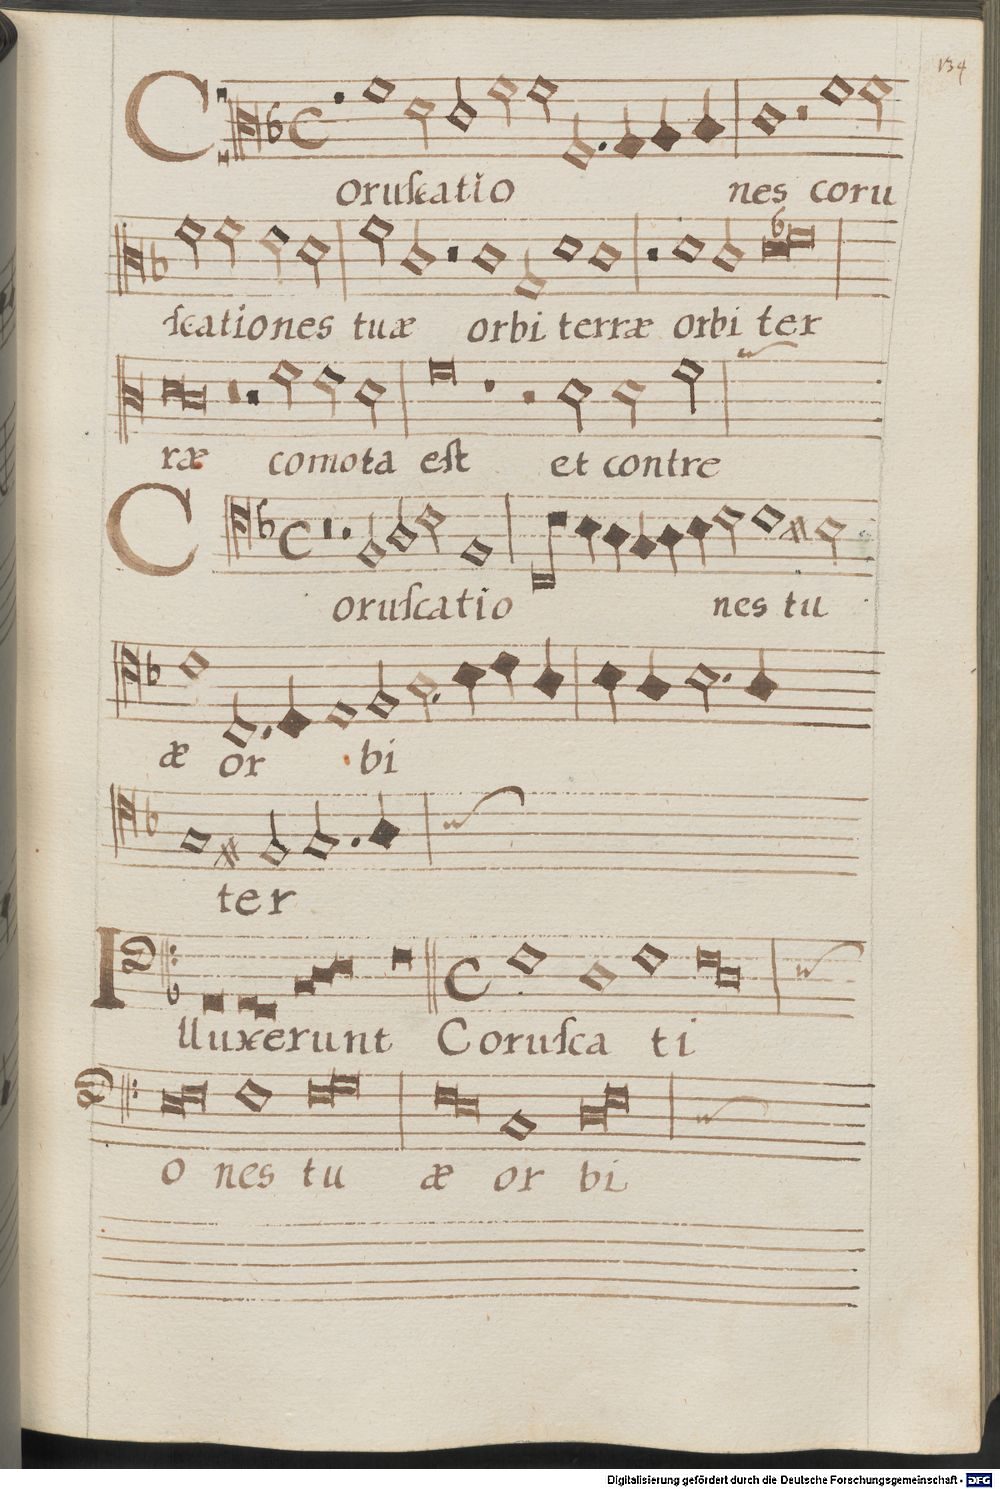 134
Coruſcatio nes coru
ſcationes tuæ orbi terræ orbi ter
ræ comota eſt et contre
Coruſcatio nes tu
æ or bi
ter
Illuxerunt Coruſca ti
o nes tu æ or bi
Digitalisierung gefördert durch die Deutsche Forschungsgemeinschaft - DFG